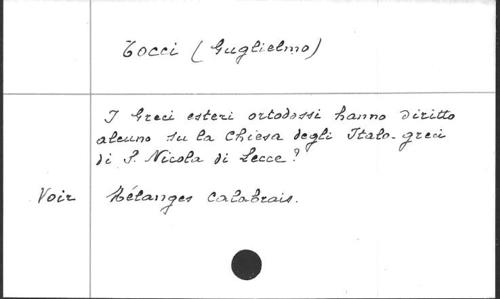 Tocci (Guglielmo)
I Greci esteri ortodossi hanno diritto
alcuno su la Chiesa degli Italo-greci
di S. Nicola di Lecce?
Voir Mélanges Calabrais.